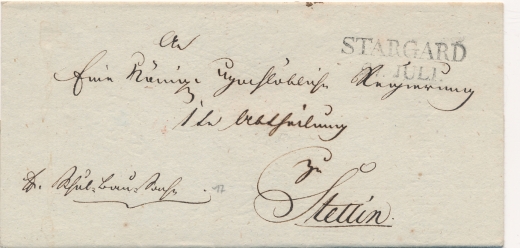 STARGARD
JULI
An
Eine Königl Hochlöbliche Regierung
1te Abtheilung
zu
Stettin.
Schul-Bau-Sache